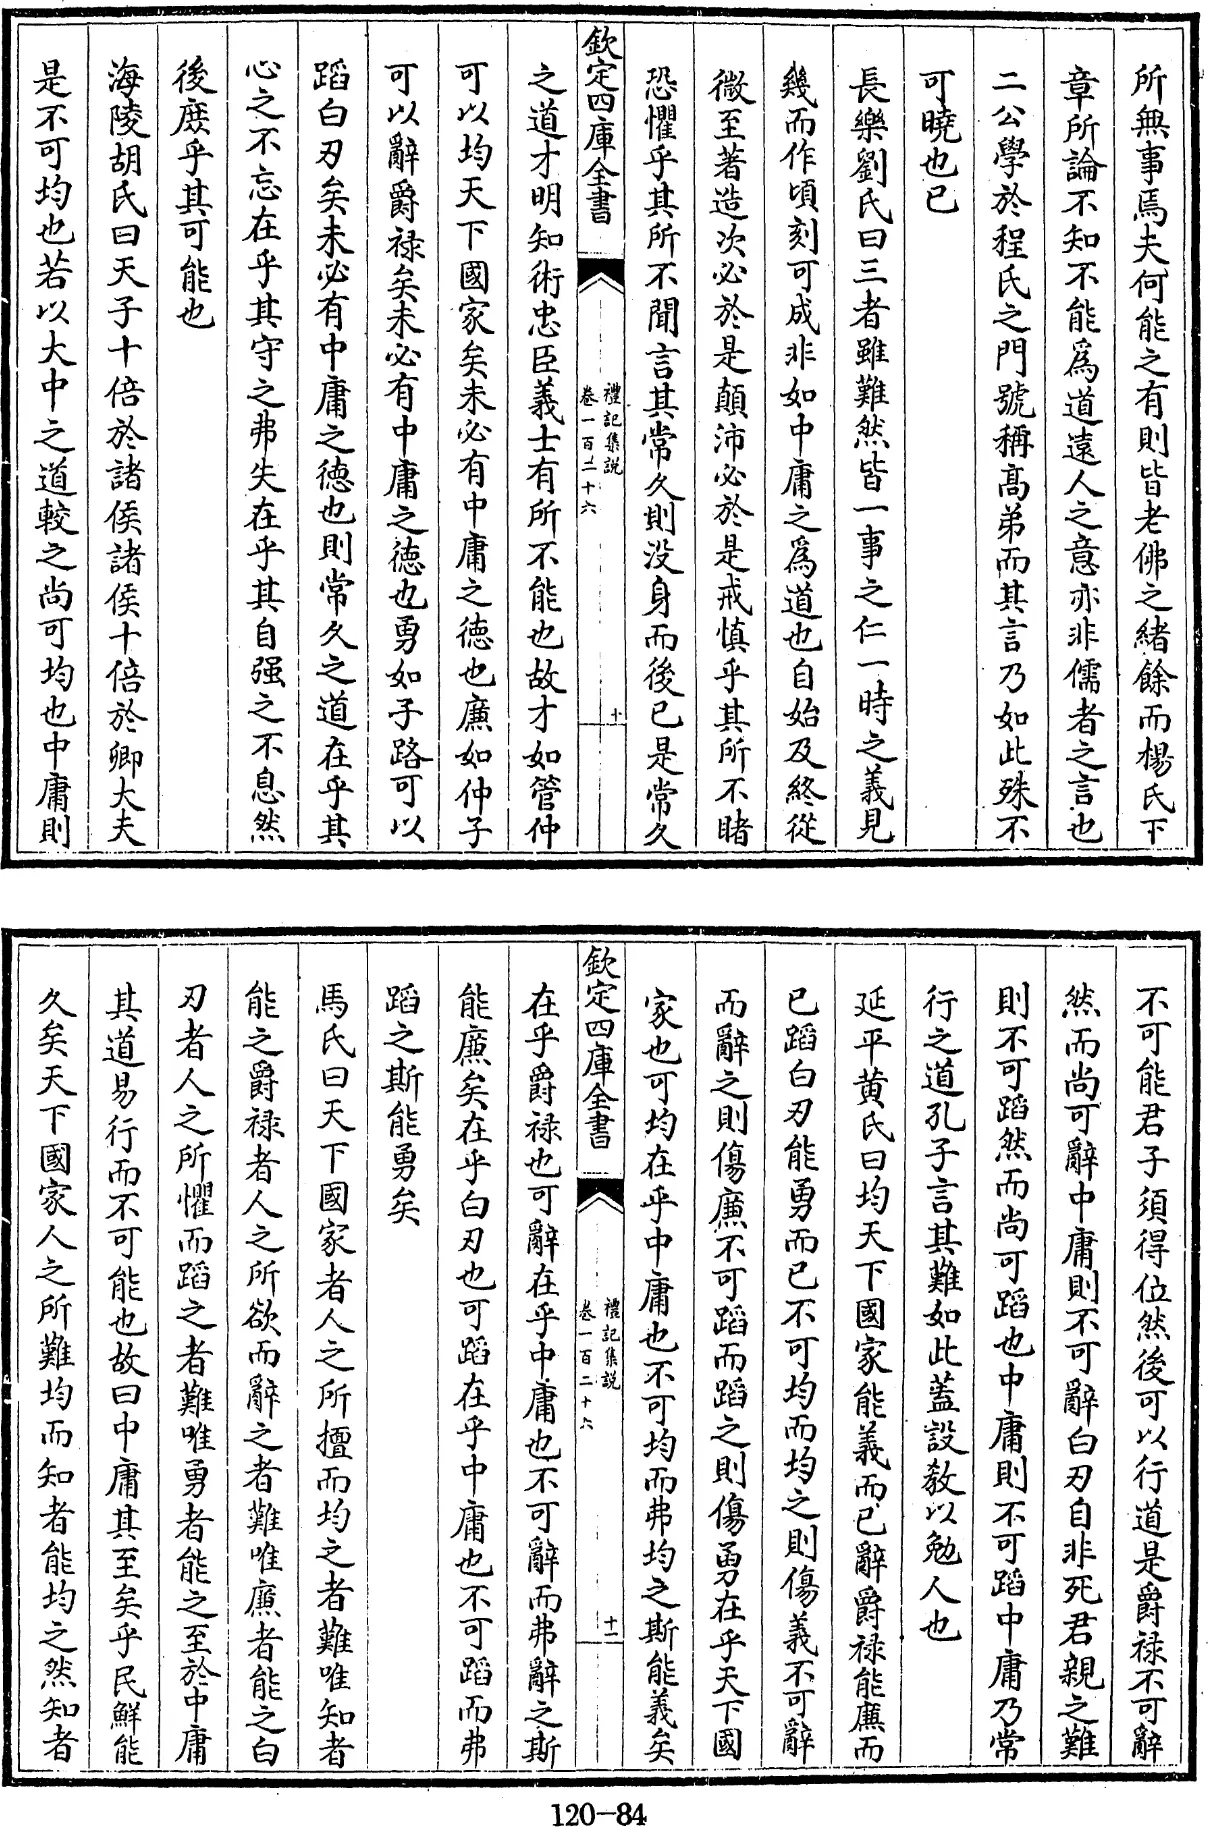 所無事焉夫何能之有則皆老佛之緒餘而楊氏下
章所論不知不能為道遠人之意亦非儒者之言也
二公學於程氏之門號稱髙弟而其言乃如此殊不
可曉也已
長樂劉氏曰三者雖難然皆一事之仁一時之義見
幾而作頃刻可成非如中庸之為道也自始及終從
微至著造次必於是顛沛必於是戒慎乎其所不睹
恐懼乎其所不聞言其常久則没身而後已是常久
欽定四庫全書
禮記集説
卷一百二十六
十
之道才明知術忠臣義士有所不能也故才如管仲
可以均天下國家矣未必有中庸之徳也廉如仲子
可以辭爵禄矣未必有中庸之徳也勇如子路可以
蹈白刃矣未必有中庸之徳也則常久之道在乎其
心之不忘在乎其守之弗失在乎其自强之不息然
後庶乎其可能也
海陵胡氏曰天子十倍於諸侯諸侯十倍於卿大夫
是不可均也若以大中之道較之尚可均也中庸則
不可能君子須得位然後可以行道是爵禄不可辭
然而尚可辭中庸則不可辭白刃自非死君親之難
則不可蹈然而尚可蹈也中庸則不可蹈中庸乃常
行之道孔子言其難如此蓋設敎以勉人也
延平黄氏曰均天下國家能義而已辭爵禄能廉而
已蹈白刃能勇而已不可均而均之則傷義不可辭
而辭之則傷廉不可蹈而蹈之則傷勇在乎天下國
家也可均在乎中庸也不可均而弗均之斯能義矣
欽定四庫全書
禮記集説
卷一百二十六
十一
在乎爵禄也可辭在乎中庸也不可辭而弗辭之斯
能廉矣在乎白刃也可蹈在乎中庸也不可蹈而弗
蹈之斯能勇矣
馬氏曰天下國家者人之所擅而均之者難唯知者
能之爵禄者人之所欲而辭之者難唯廉者能之白
刃者人之所懼而蹈之者難唯勇者能之至於中庸
其道易行而不可能也故曰中庸其至矣乎民鮮能
久矣天下國家人之所難均而知者能均之然知者
120-84